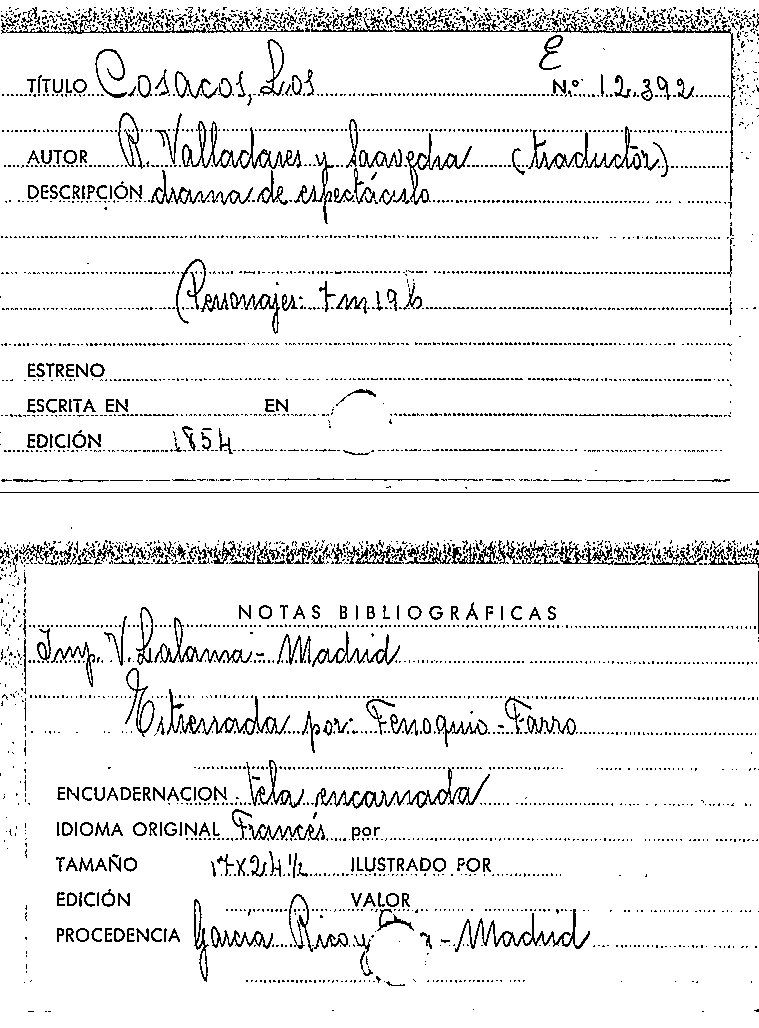 E
TÍTULO Cosacos, Los N.º 12.392
AUTOR R. Valladares y Saavedra (traductor)
DESCRIPCIÓN drama de espectáculo
Personajes: 7 m 19 h
ESTRENO
ESCRITA EN EN
EDICIÓN 1854
NOTAS BIBLIOGRÁFICAS
Imp. V. Lalama - Madrid
Estrenada por: Fenoquio - Farro
ENCUADERNACION tela encarnada
IDIOMA ORIGINAL Francés por
TAMAÑO 17x24½ ILUSTRADO POR
EDICIÓN VALOR
PROCEDENCIA García Rico y - Madrid